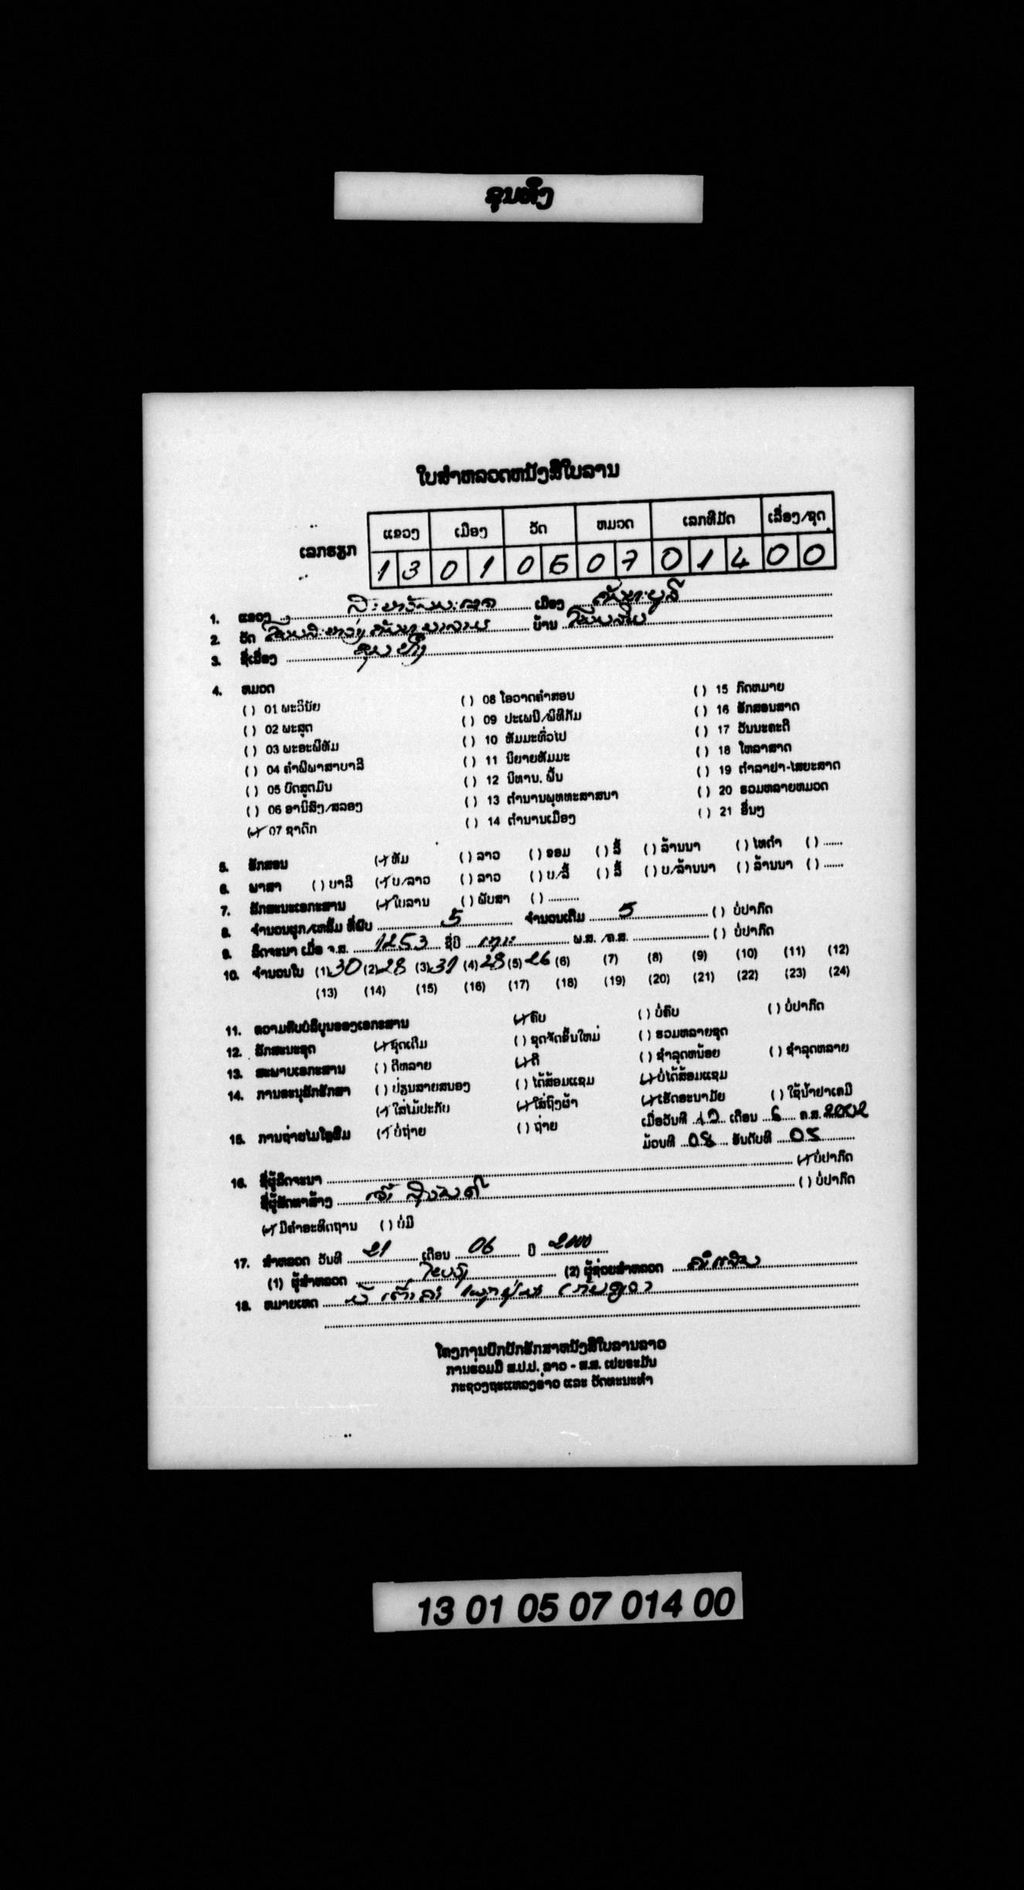 ຂຸນທຶງ
ໃບສຳຫລວດຫນັງສືໃບລານ
ແຂວງ ເມືອງ ວັດ ຫມວດ ເລກທີມັດ ເລື່ອງ/ຊຸດ
ເລກຮຽກ 1 3 0 1 0 5 0 7 0 1 4 0 0
1. ແຂວງ ສະຫວັນນະເຂດ ເມືອງ ຄັນທະບູລີ
2. ວັດ ບ້ານ
3. ຊື່ເລື່ອງ ຂຸນທຶງ
4. ຫມວດ
( ) 01 ພະວິນັຍ ( ) 08 ໂອວາດຄຳສອນ ( ) 15 ກົດຫມາຍ
( ) 02 ພະສູດ ( ) 09 ປະເພນີ/ພິທີກັມ ( ) 16 ອັກສອນສາດ
( ) 03 ພະອະພິທັມ ( ) 10 ທັມມະທົ່ວໄປ ( ) 17 ວັນນະຄະດີ
( ) 04 ຄຳພີພາສາບາລີ ( ) 11 ນິຍາຍທັມມະ ( ) 18 ໂຫລາສາດ
( ) 05 ບົດສູດມົນ ( ) 12 ນິທານ, ພື້ນ ( ) 19 ຕຳລາຢາ-ໄສຍະສາດ
( ) 06 ອານິສົງ/ສລອງ ( ) 13 ຕຳນານພຸທທະສາສນາ ( ) 20 ຮວມຫລາຍຫມວດ
(✓) 07 ຊາດົກ ( ) 14 ຕຳນານເມືອງ ( ) 21 ອື່ນໆ
5. ອັກສອນ (✓) ທັມ ( ) ລາວ ( ) ຂອມ ( ) ລື້ ( ) ລ້ານນາ ( ) ໄທດຳ ( ) ......
6. ພາສາ ( ) ບາລີ (✓) ບ/ລາວ ( ) ລາວ ( ) ບ/ລື້ ( ) ລື້ ( ) ບ/ລ້ານນາ ( ) ລ້ານນາ ( ) ......
7. ລັກສະນະເອກະສານ (✓) ໃບລານ ( ) ພັບສາ ( ) ..........
8. ຈຳນວນຜູກ/ເຫລັ້ມ ທີ່ພົບ 5 ຈຳນວນເຕັມ 5 ( ) ບໍ່ປາກົດ
9. ລິດຈະນາ ເມື່ອ ຈ.ສ. 1253 ຊື່ປີ ພ.ສ. /ຄ.ສ. ( ) ບໍ່ປາກົດ
10. ຈຳນວນໃບ (1) 30 (2) 28 (3) 31 (4) 28 (5) 26 (6) (7) (8) (9) (10) (11) (12)
(13) (14) (15) (16) (17) (18) (19) (20) (21) (22) (23) (24)
11. ຄວາມຄົບບໍລິບູນຂອງເອກະສານ (✓) ຄົບ ( ) ບໍ່ຄົບ ( ) ບໍ່ປາກົດ
12. ລັກສະນະຊຸດ (✓) ຊຸດເດີມ ( ) ຊຸດຈັດຂຶ້ນໃຫມ່ ( ) ຮວມຫລາຍຊຸດ
13. ສະພາບເອກະສານ ( ) ດີຫລາຍ (✓) ດີ ( ) ຊຳລຸດຫນ້ອຍ ( ) ຊຳລຸດຫລາຍ
14. ການອະນຸລັກຮັກສາ ( ) ປ່ຽນສາຍສນອງ ( ) ໄດ້ສ້ອມແຊມ (✓) ບໍ່ໄດ້ສ້ອມແຊມ
(✓) ໃສ່ໄມ້ປະກັບ (✓) ໃສ່ຖົງຜ້າ (✓) ເຮັດອະນາມັຍ ( ) ໃຊ້ນ້ຳຢາເຄມີ
15. ການຖ່າຍໄມໂຄຣຟິມ (✓) ບໍ່ຖ່າຍ ( ) ຖ່າຍ ເມື່ອວັນທີ 12 ເດືອນ 6 ຄ.ສ. 2002
ມ້ວນທີ 08 ອັນດັບທີ 05
16. ຊື່ຜູ້ລິດຈະນາ (✓) ບໍ່ປາກົດ
ຊື່ຜູ້ສັດທາສ້າງ ( ) ບໍ່ປາກົດ
(✓) ມີຄຳອະທິດຖານ ( ) ບໍ່ມີ
17. ສຳຫລວດ ວັນທີ 21 ເດືອນ 06 ປີ 2000
(1) ຜູ້ສຳຫລວດ (2) ຜູ້ຊ່ວຍສຳຫລວດ
18. ຫມາຍເຫດ
ໂຄງການປົກປັກຮັກສາຫນັງສືໃບລານລາວ
ການຮ່ວມມື ສ.ປ.ປ. ລາວ - ສ.ສ. ເຢຍຣະມັນ
ກະຊວງຖະແຫລງຂ່າວ ແລະ ວັດທະນະທຳ
13 01 05 07 014 00